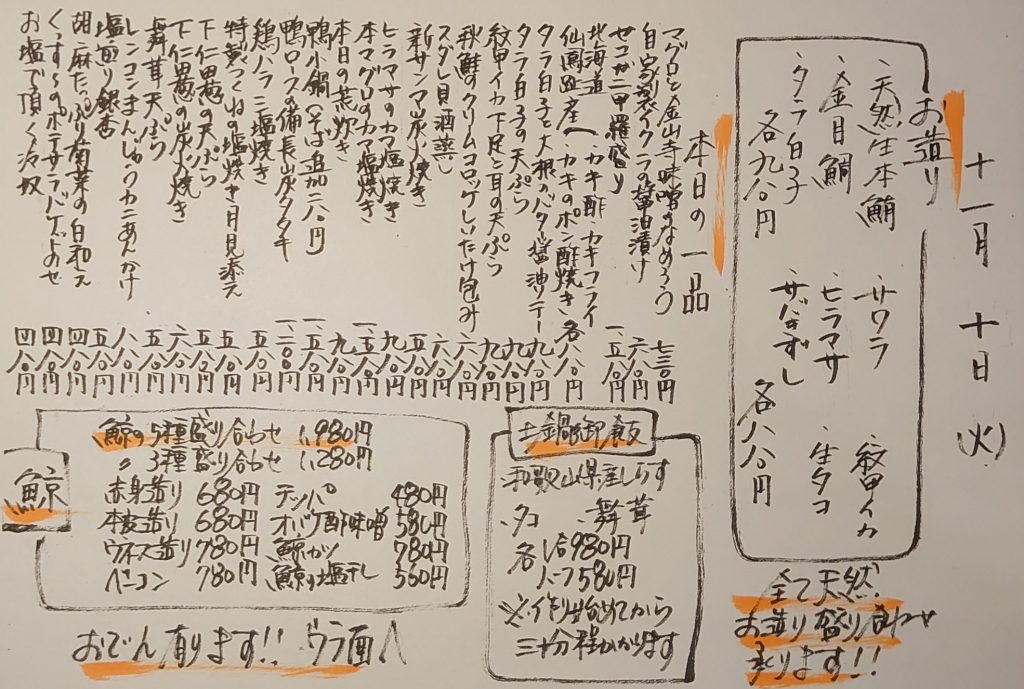 十一月十日(火)
お造り
・天然生本鮪
・金目鯛
・タラ白子
各九八〇円
・サワラ
・ヒラマサ
・サバきずし
・紋甲イカ
・生タコ
各八八〇円
全て天然
お造り盛り合わせ
承ります!!
本日の一品
マグロと金山寺味噌のなめろう 七三〇円
自家製イクラの醤油漬け 六八〇円
セコガニ甲羅盛り 一、五八〇円
北海道 仙鳳趾産 カキ酢 カキフライ カキのポン酢焼き 各八八〇円
タラ白子と大根のバター醤油ソテー 九八〇円
タラ白子の天ぷら 九八〇円
紋甲イカ下足と耳の天ぷら 九八〇円
秋鮭のクリームコロッケしいたけ包み 六八〇円
スダレ貝酒蒸し 六八〇円
新サンマ炭火焼き 五八〇円
ヒラマサのカマ塩焼き 九八〇円
本マグロのカマ塩焼き 一、五八〇円
本日の荒炊き 九八〇円
鴨小鍋(そば追加二八〇円 一、五八〇円
鴨ロースの備長炭タタキ 一、二〇〇円
鶏ハラミ塩焼き 五八〇円
特製つくねの塩焼き月見添え 五八〇円
下仁田葱の天ぷら 五八〇円
下仁田葱の炭火焼き 六八〇円
舞茸天ぷら 五八〇円
レンコンまんじゅうカニあんかけ 八八〇円
塩煎り銀杏 五八〇円
胡麻たっぷり菊菜の白和え 四八〇円
くっすぅのポテサラバゲットのせ 四八〇円
お塩で頂く冷奴 四八〇円
土鍋御飯
・和歌山県産しらす
・タコ ・舞茸
各1合980円
ハーフ580円
※作り始めてから
三十分程かかります
鯨
鯨の5種盛り合わせ 1,980円
〃3種盛り合わせ 1,280円
赤身造り 680円 テッパ 480円
本皮造り 680円 オバケ酢味噌 580円
ウネス造り 780円 鯨カツ 780円
ベーコン 780円 鯨の塩干し 560円
おでん有ります!! ウラ面へ